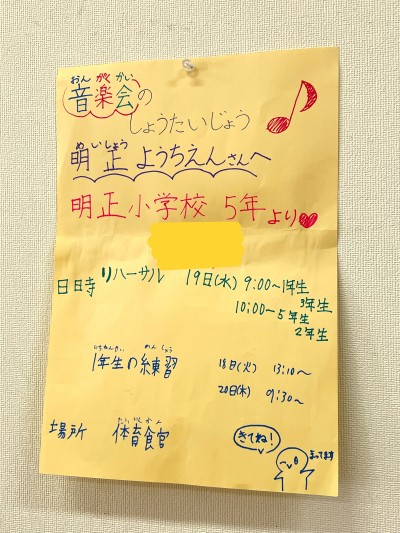 おん がく かい
音楽会の
しょうたいじょう
めい しょう
明正ようちえんさんへ
明正小学校 5年より
日時 リハーサル 19日(水) 9:00〜1年生
3年生
10:00〜5年生
2年生
いちねんせい れん しゅう
1年生の練習 18日(火) 13:10〜
20日(木) 9:30〜
たい いく かん
場所 体育館
きてね!
まってます